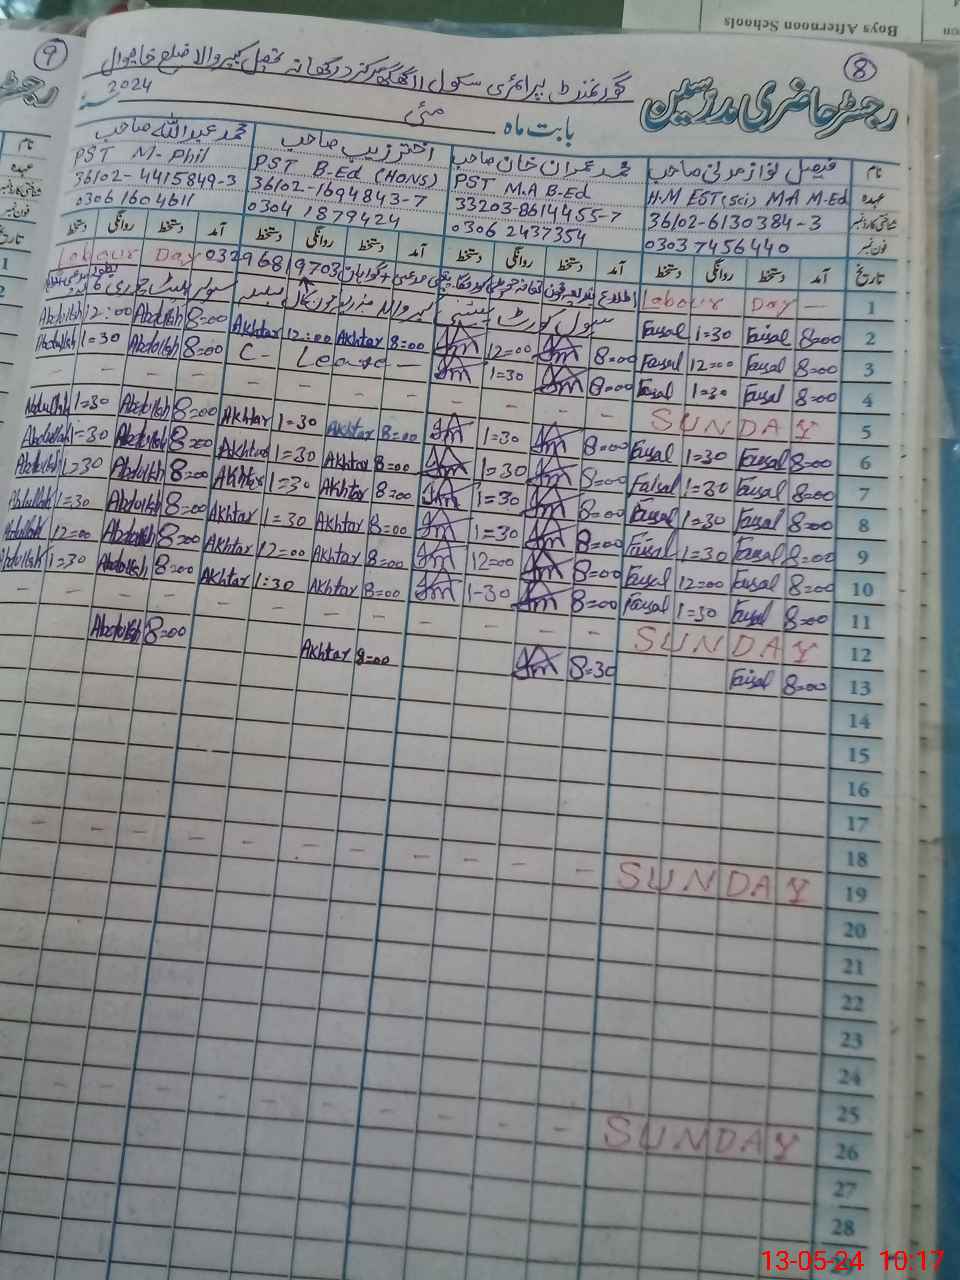 Boys Afternoon Schools
9
8
رجسٹر حاضری مدرسین
گورنمنٹ پرائمری سکول
بابت ماہ مئی 2024
نام فیصل نواز مدنی صاحب محمد عمران خان صاحب اختر زیب صاحب محمد عبداللہ صاحب
عہدہ H.M EST(Sci) M.A M.Ed PST M.A B-Ed PST B-Ed (HONS) PST M-Phil
شناختی کارڈ نمبر 36102-6130384-3 33203-8614455-7 36102-1694843-7 36102-4415849-3
فون نمبر 03037456440 03062437354 03041879424 03061604611
تاریخ آمد دستخط روانگی دستخط آمد دستخط روانگی دستخط آمد دستخط روانگی دستخط آمد دستخط روانگی دستخط
1 Labour Day — 03296819703 Labour Day
2 8=00 Faisal 1=30 Faisal
3 8=00 Faisal 12=00 Faisal 8=00 12=00 8=00 Akhtar 12:00 Akhtar 8=00 Abdullah 12:00 Abdullah
4 8=00 Faisal 1=30 Faisal 8=00 1=30 C- Leave — 8=00 Abdullah 1=30 Abdullah
5 SUNDAY - - - - - - - -
6 8=00 Faisal 1=30 Faisal 8=00 1=30 8=00 Akhtar 1=30 Akhtar 8=00 Abdullah 1=30 Abdullah
7 8=00 Faisal 1=30 Faisal 8=00 1=30 8=00 Akhtar 1=30 Akhtar 8=00 Abdullah 1=30 Abdullah
8 8=00 Faisal 1=30 Faisal 8=00 1=30 8=00 Akhtar 1=30 Akhtar 8=00 Abdullah 1=30 Abdullah
9 8=00 Faisal 1=30 Faisal 8=00 1=30 8=00 Akhtar 1=30 Akhtar 8=00 Abdullah 1=30 Abdullah
10 8=00 Faisal 12=00 Faisal 8=00 12=00 8=00 Akhtar 12=00 Akhtar 8=00 Abdullah 12=00 Abdullah
11 8=00 Faisal 1=30 Faisal 8=00 1-30 8=00 Akhtar 1:30 Akhtar 8=00 Abdullah 1=30 Abdullah
12 SUNDAY - - - - - - - -
13 8=00 Faisal 8=30 8=00 Akhtar 8=00 Abdullah
14
15
16
17
18
19 SUNDAY - - - - - - - -
20
21
22
23
24
25
26 SUNDAY - - - - - - - -
27
28
13-05-24 10:17